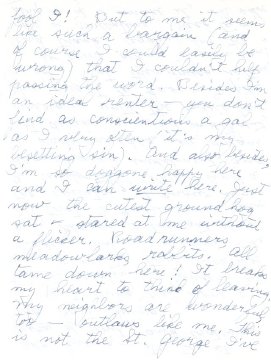 fool I! But to me it seems
like such a bargain (and
of course I could easily be
wrong) that I couldn't help
passing the word. Besides I'm
an ideal renter – you don't
find as conscientious a gal
as I very often (it's my
besetting sin). And also besides,
I'm so doggone happy here
and I can write here. Just
now the cutest ground hog
sat & stared at me without
a flicker. Roadrunners
meadowlarks, rabbits. All
tame down here! It breaks
my heart to think of leaving.
My neighbors are wonderful
too – outlaws like me. This
is not the St. George I've